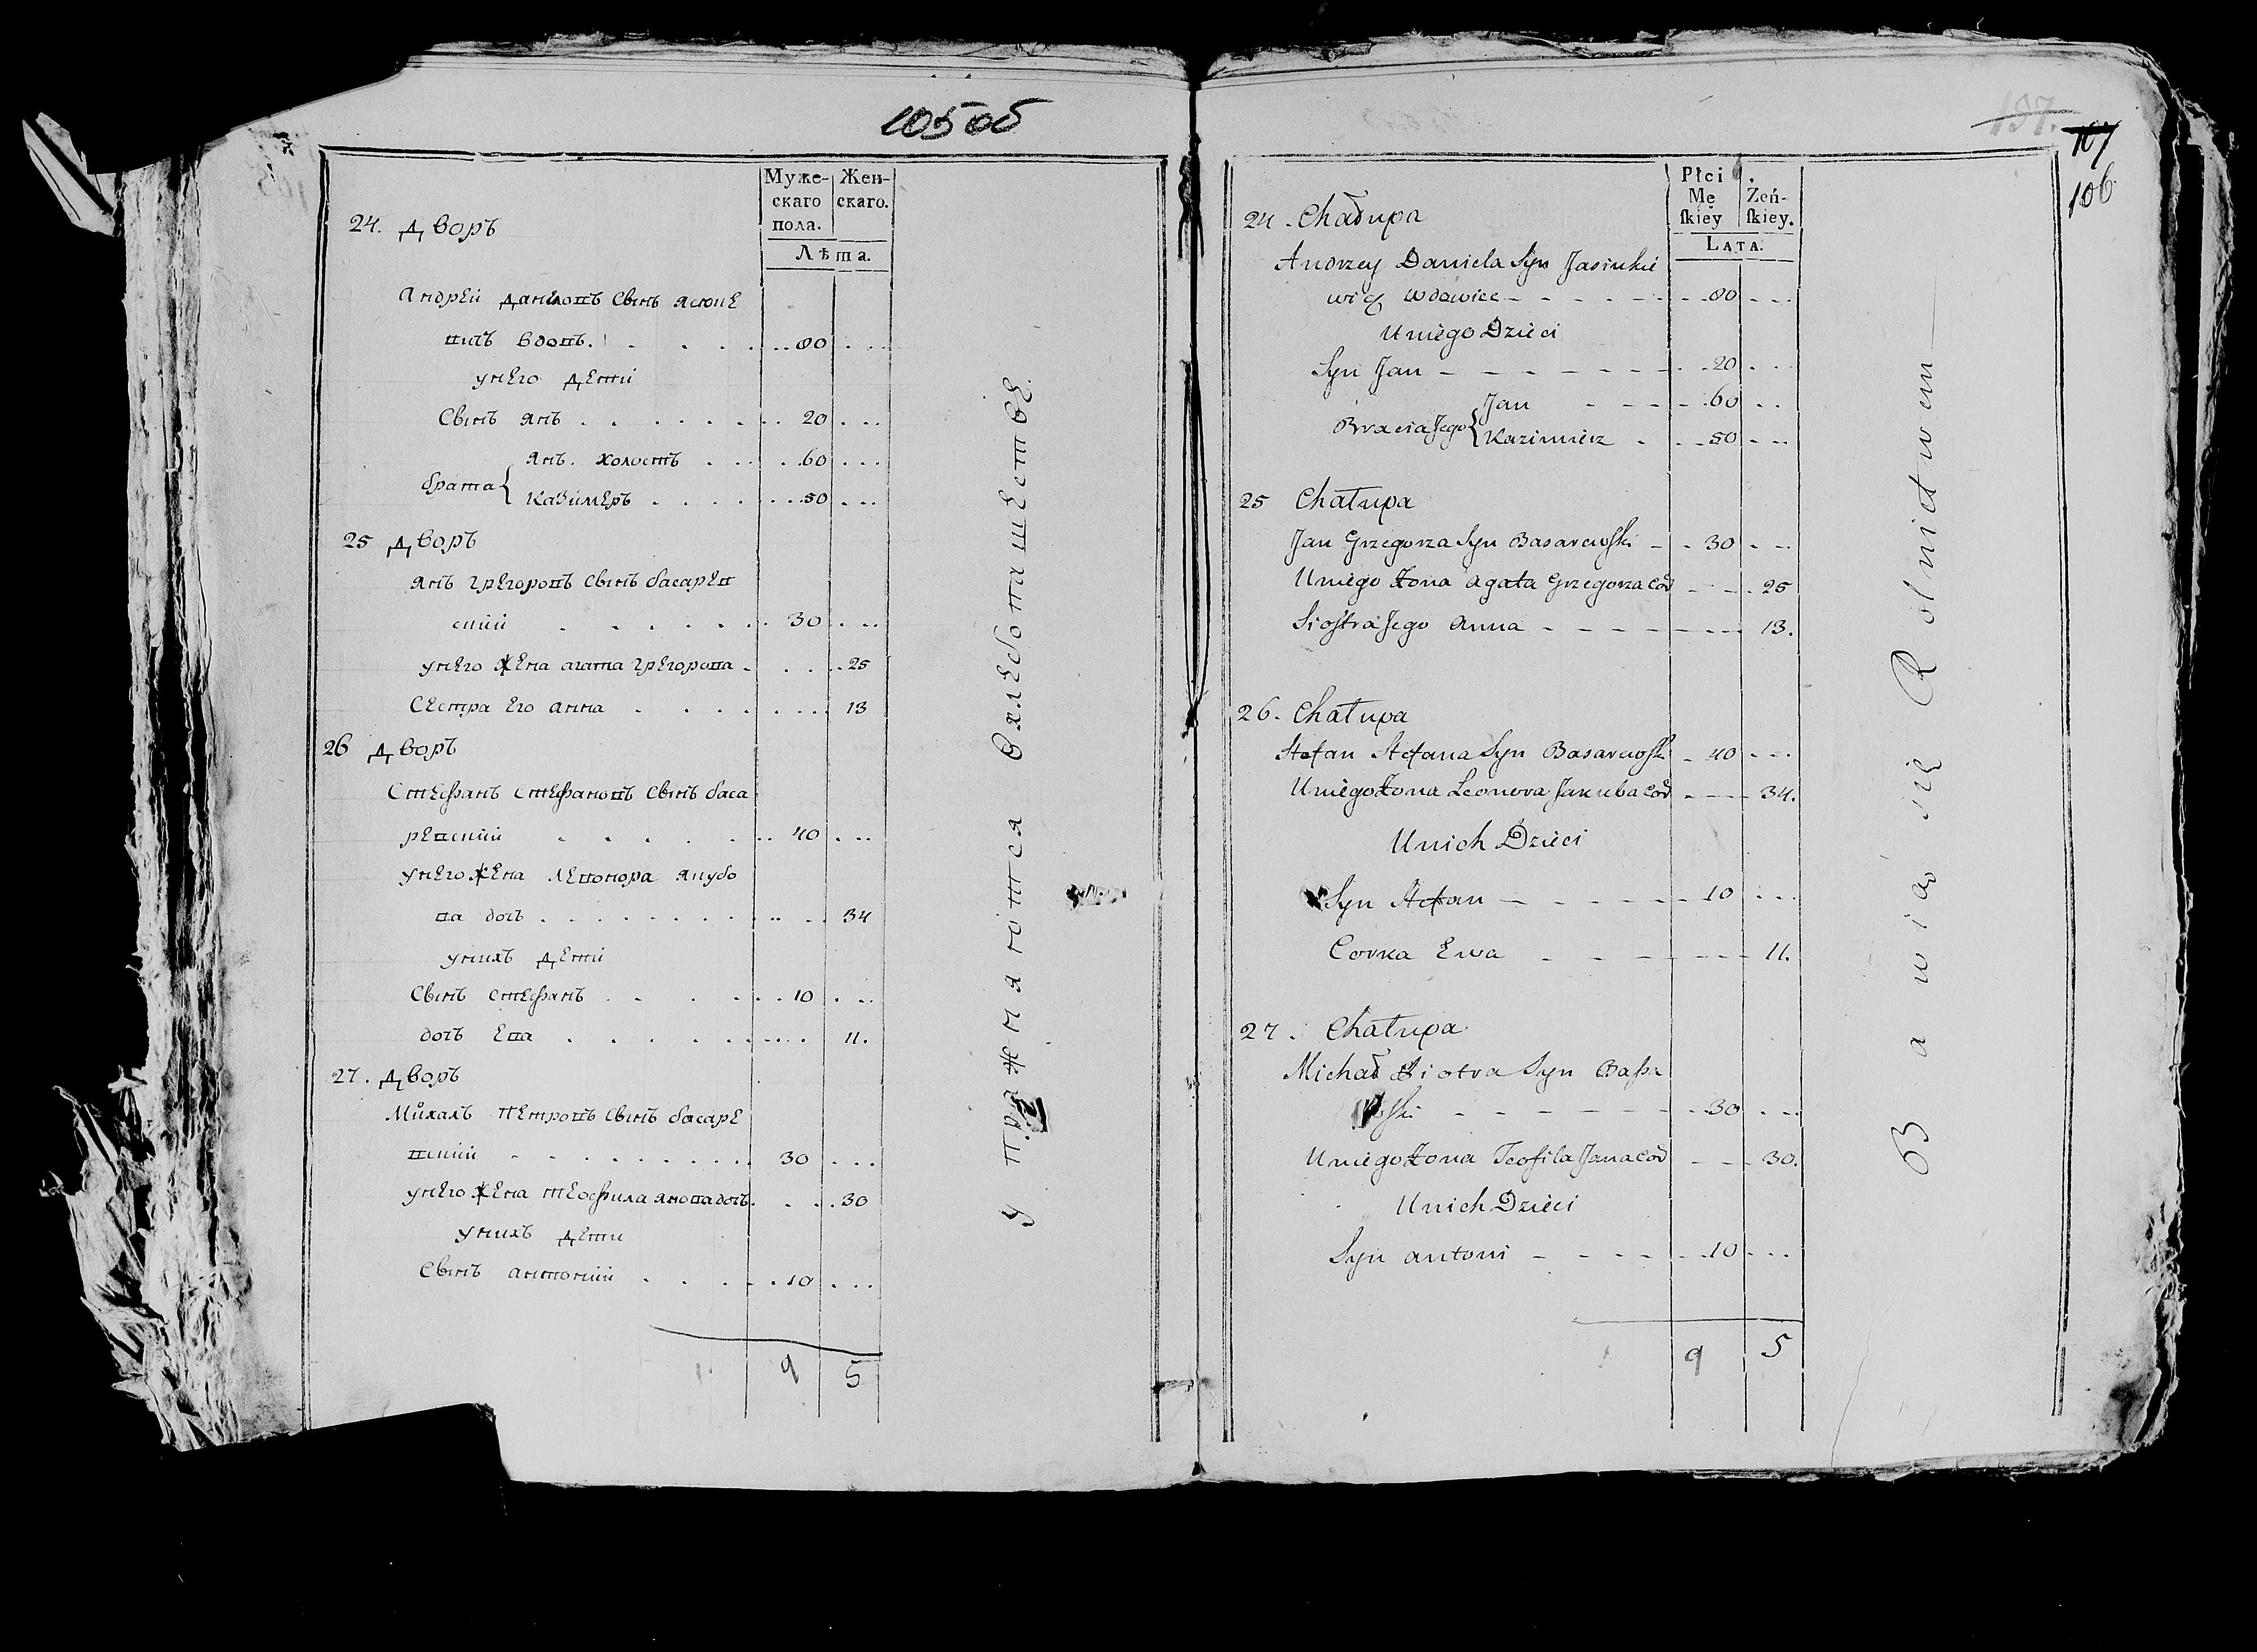 105об
Муже- Жен-
скаго скаго.
пола.
Лѣта.
24. Дворъ
Андрей Даниловъ Сынъ Ясюке
вичъ вдовъ. 80
унего Дети
Сынъ Янъ 20
Янъ. холостъ 60
брата{ Казимеръ 50
25 Дворъ
Янъ Грегоровъ Сынъ басарев
ский 30
унего Жена агата Грегорова 25
Сестра Его анна 13
26 Дворъ
Стефанъ Стефановъ Сынъ баса
ревский 40
унего Жена Левонора Якубо
ва дочъ 34
унихъ Дети
Сынъ Стефанъ 10
дочъ Ева 11.
27. Дворъ
Михалъ Петровъ Сынъ басаре
вский 30
унего Жена теофила янова дочъ 30
унихъ Дети
Сынъ антоний 10
9 5
упражняются Вхлебопашестве.
137.
107
106
Płci Żeń-
Mę skiey.
skiey
LATA.
24. Chałupa
Andrzey Daniela Syn Jasiukie
wicz Wdowiec 80
Uniego Dzieci
Syn Jan 20
Jan 60
Bracia Jego{ Kazimierz 50
25 Chałupa
Jan Grzegorza Syn Basarewski 30
Uniego Żona Agata Grzegorza Cór 25
Siostra Jego Anna 13.
26. Chałupa
Stefan Stefana Syn Basarewski 40
Uniego Żona Leonora Jakuba Cór 34.
Unich Dzieci
Syn Stefan 10
Corka Ewa 11.
27. Chałupa
Michał Piotra Syn Basa
ski 30
Uniego Żona Teofila Jana Cór 30.
Unich Dzieci
Syn Antoni 10
9 5
Bawią się Rolnictwem